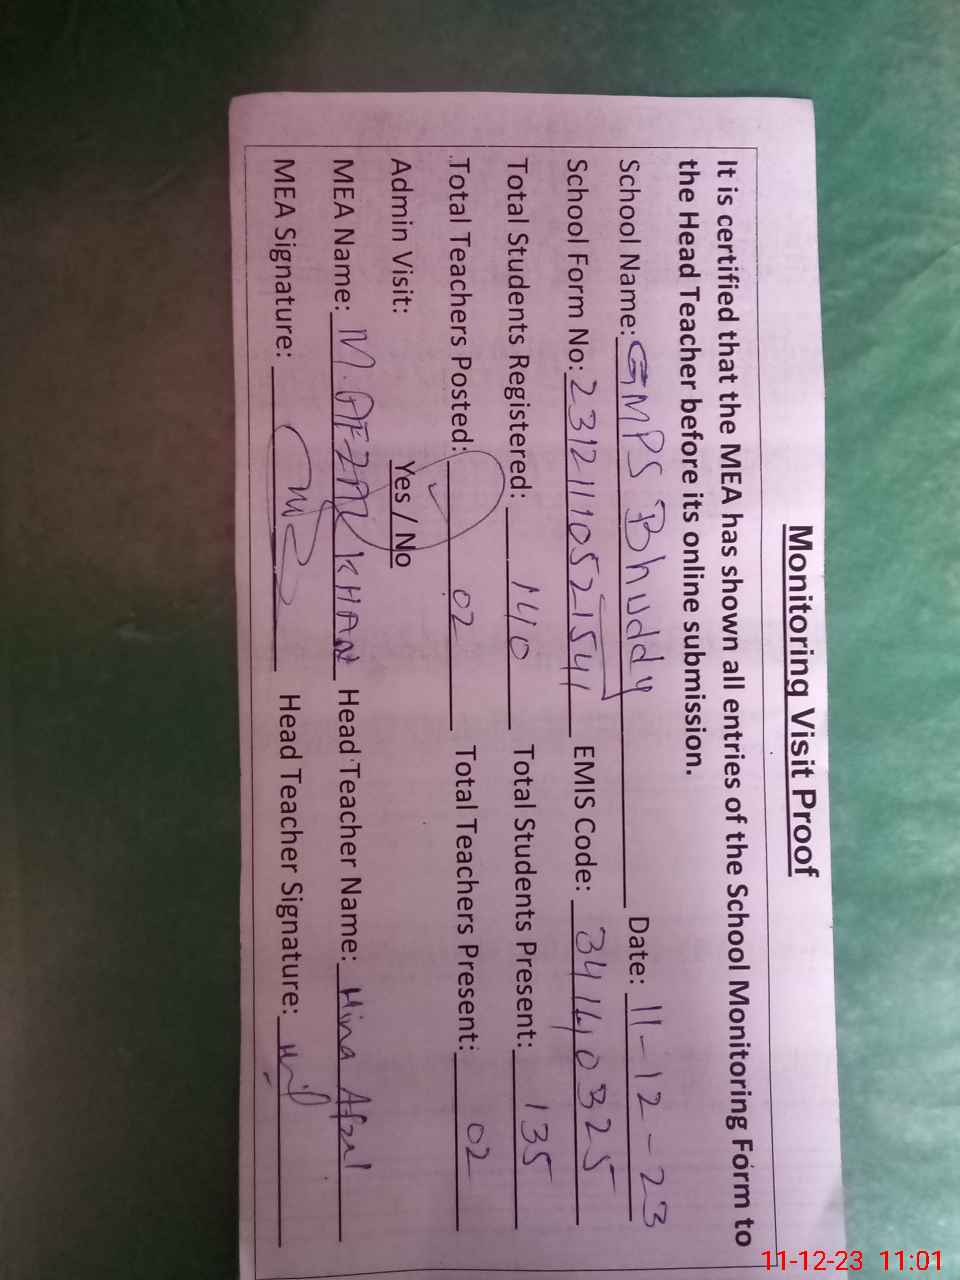 Monitoring Visit Proof
It is certified that the MEA has shown all entries of the School Monitoring Form to
the Head Teacher before its online submission.
School Name: GMPS Bhuddy Date: 11-12-23
School Form No: 23121110521541 EMIS Code: 34140325
Total Students Registered: 140 Total Students Present: 135
Total Teachers Posted: 02 Total Teachers Present: 02
Admin Visit: Yes / No
MEA Name: M. AFZAL KHAN Head Teacher Name: Hina Afzal
MEA Signature: Head Teacher Signature:
11-12-23 11:01